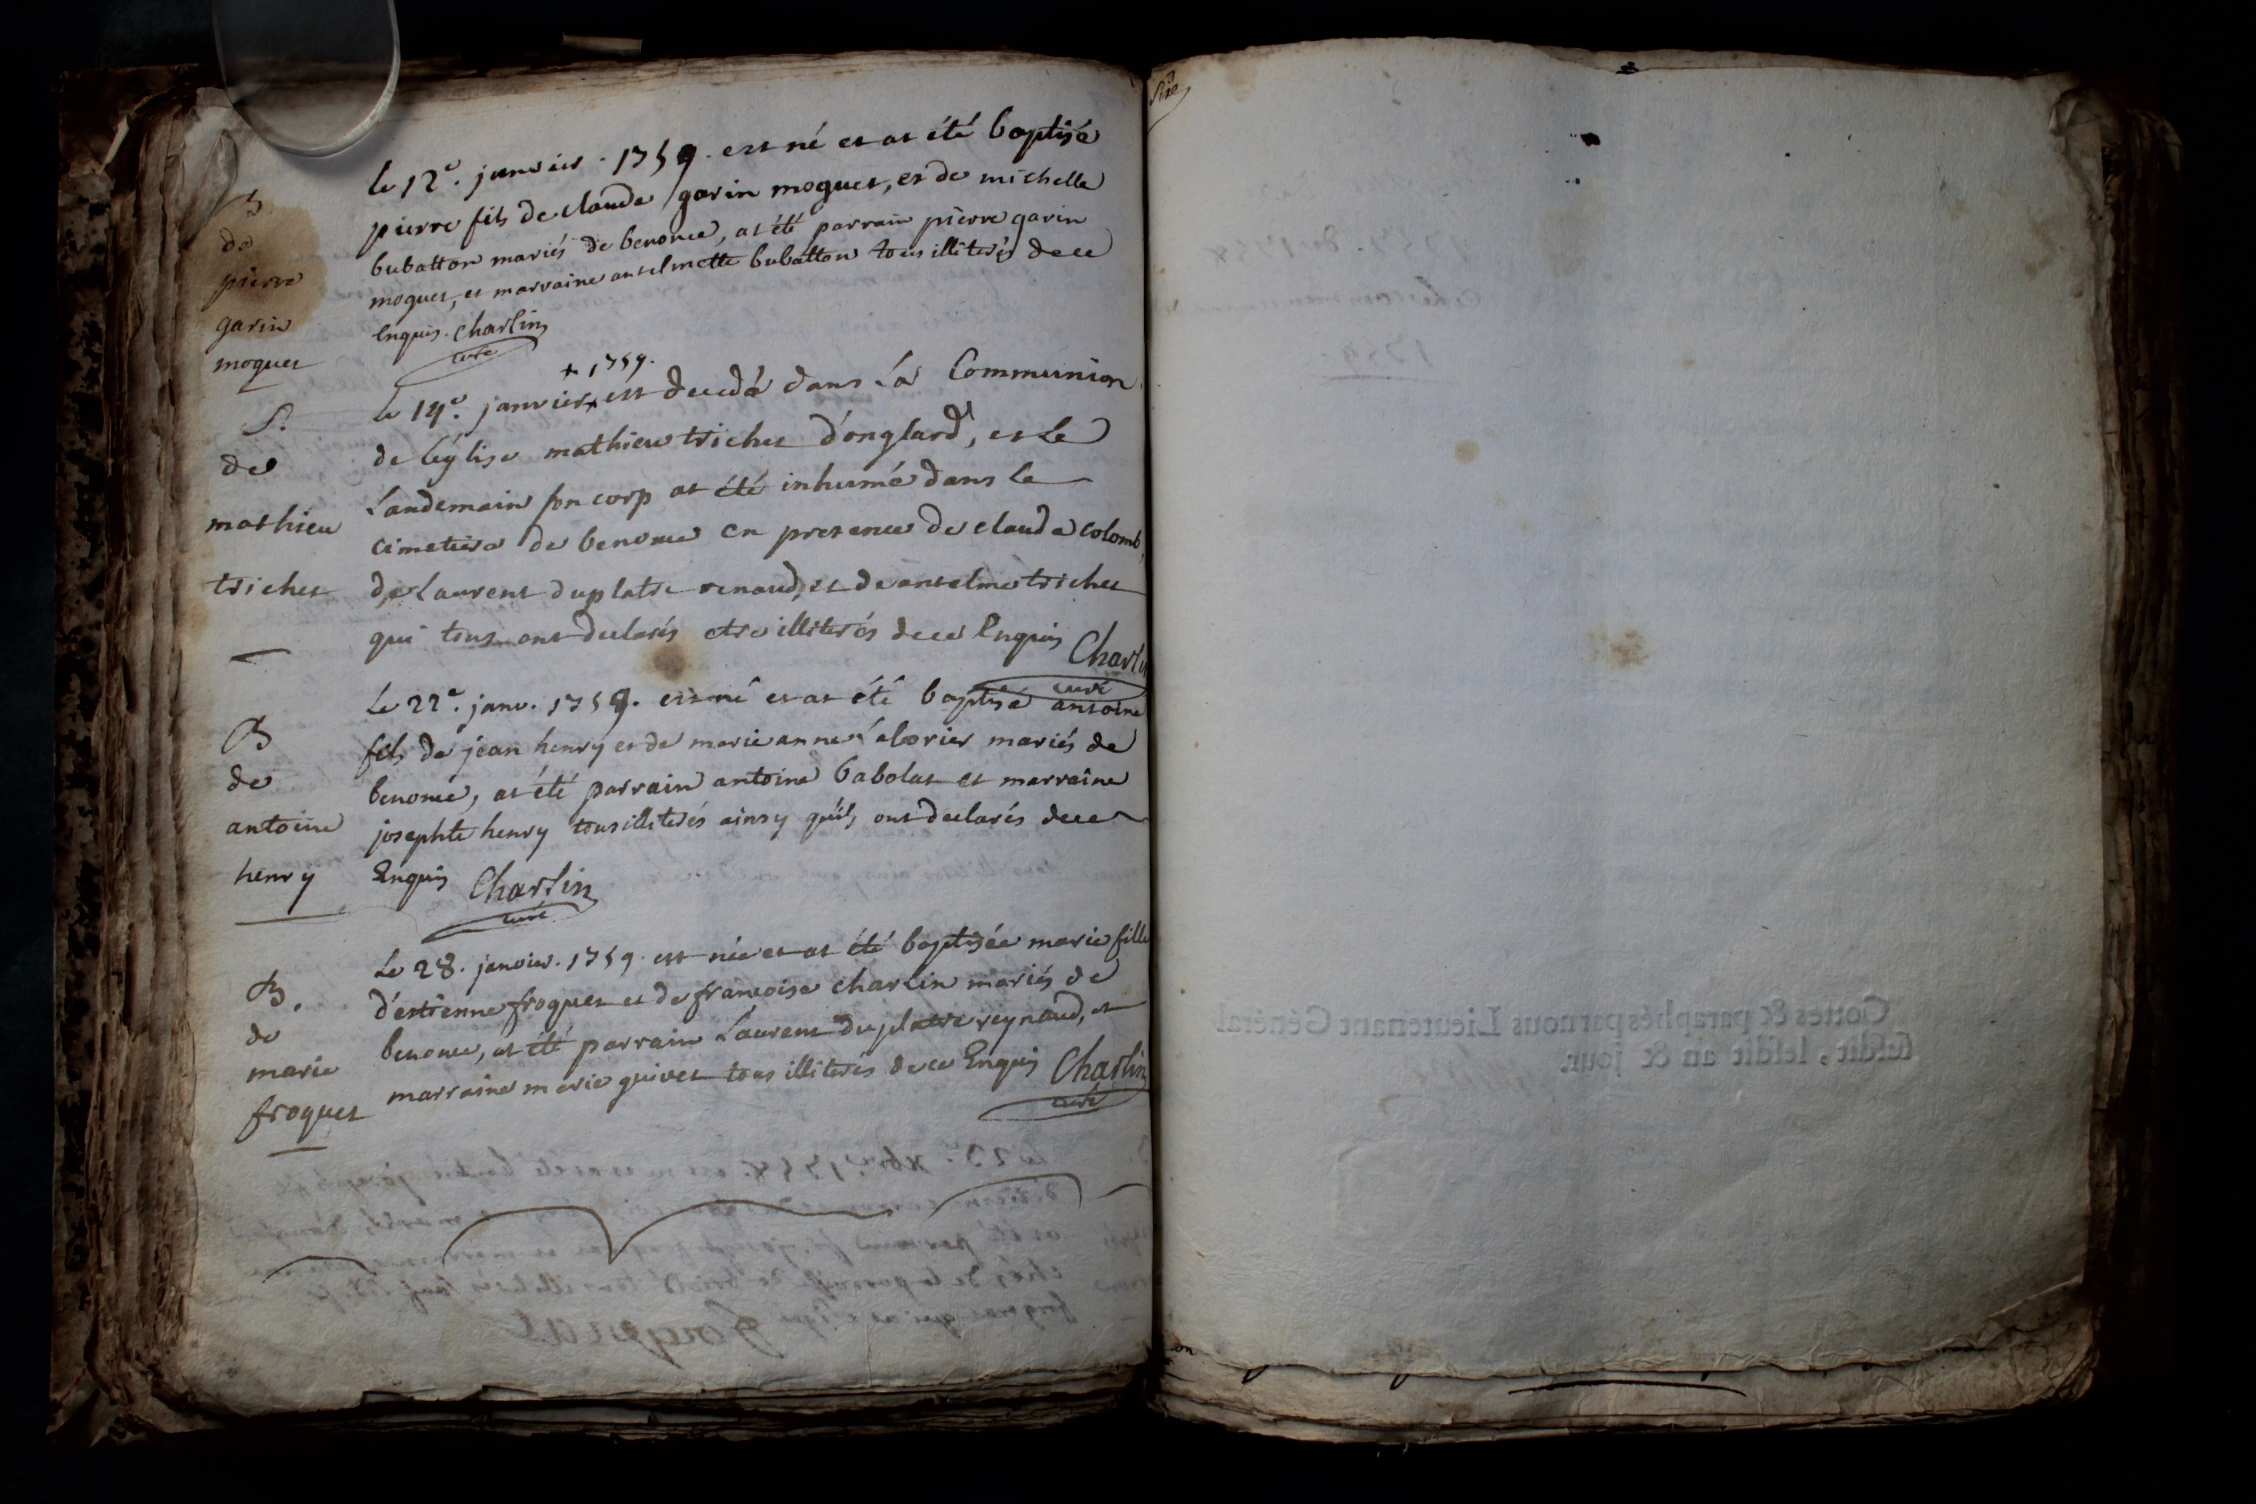 B
de
pierre
garin
moguet
le 12e. janvier. 1759. est né et at été baptisé
pierre fils de claude garin moguet, et de michelle
bubatton mariés de benonce, at été parrain pierre garin
moguet, et marraine antelmette bubatton tous illiterés de ce
Enquis. Charlin
curé
S.
de
mathieu
trichet
+ 1759.
le 14e. janvier + est decedé dans La Communion
de léglise mathieu trichet d'onglard, et Le
Landemain son corp at été inhumé dans le
cimetiere de benonce en presence de claude colomb,
de Laurent duplatre renaud, et de antelme trichet
qui tous ont declarés etre illiterés de ce Enquis Charlin
curé
B
de
antoine
henry
Le 22e. janv. 1759. est né et at été baptisé antoine
fils de jean henry et de marie anne mariés de
benonce, at été parrain antoine babolat et marraine
josephte henry tous illiterés ainsy qu'ils ont declarés de ce
Enquis Charlin
curé
B.
de
marie
froquet
Le 28. janvier. 1759. est née et at été baptisée marie fille
d'estienne froquet et de francoise charlin mariés de
benonce, at été parrain Laurent du platre reynaud, et
marraine marie quivet tous illiterés de ce Enquis Charlin
curé
Cottes & paraphés par nous Lieutenant Général
susdit, lesdit an & jour.